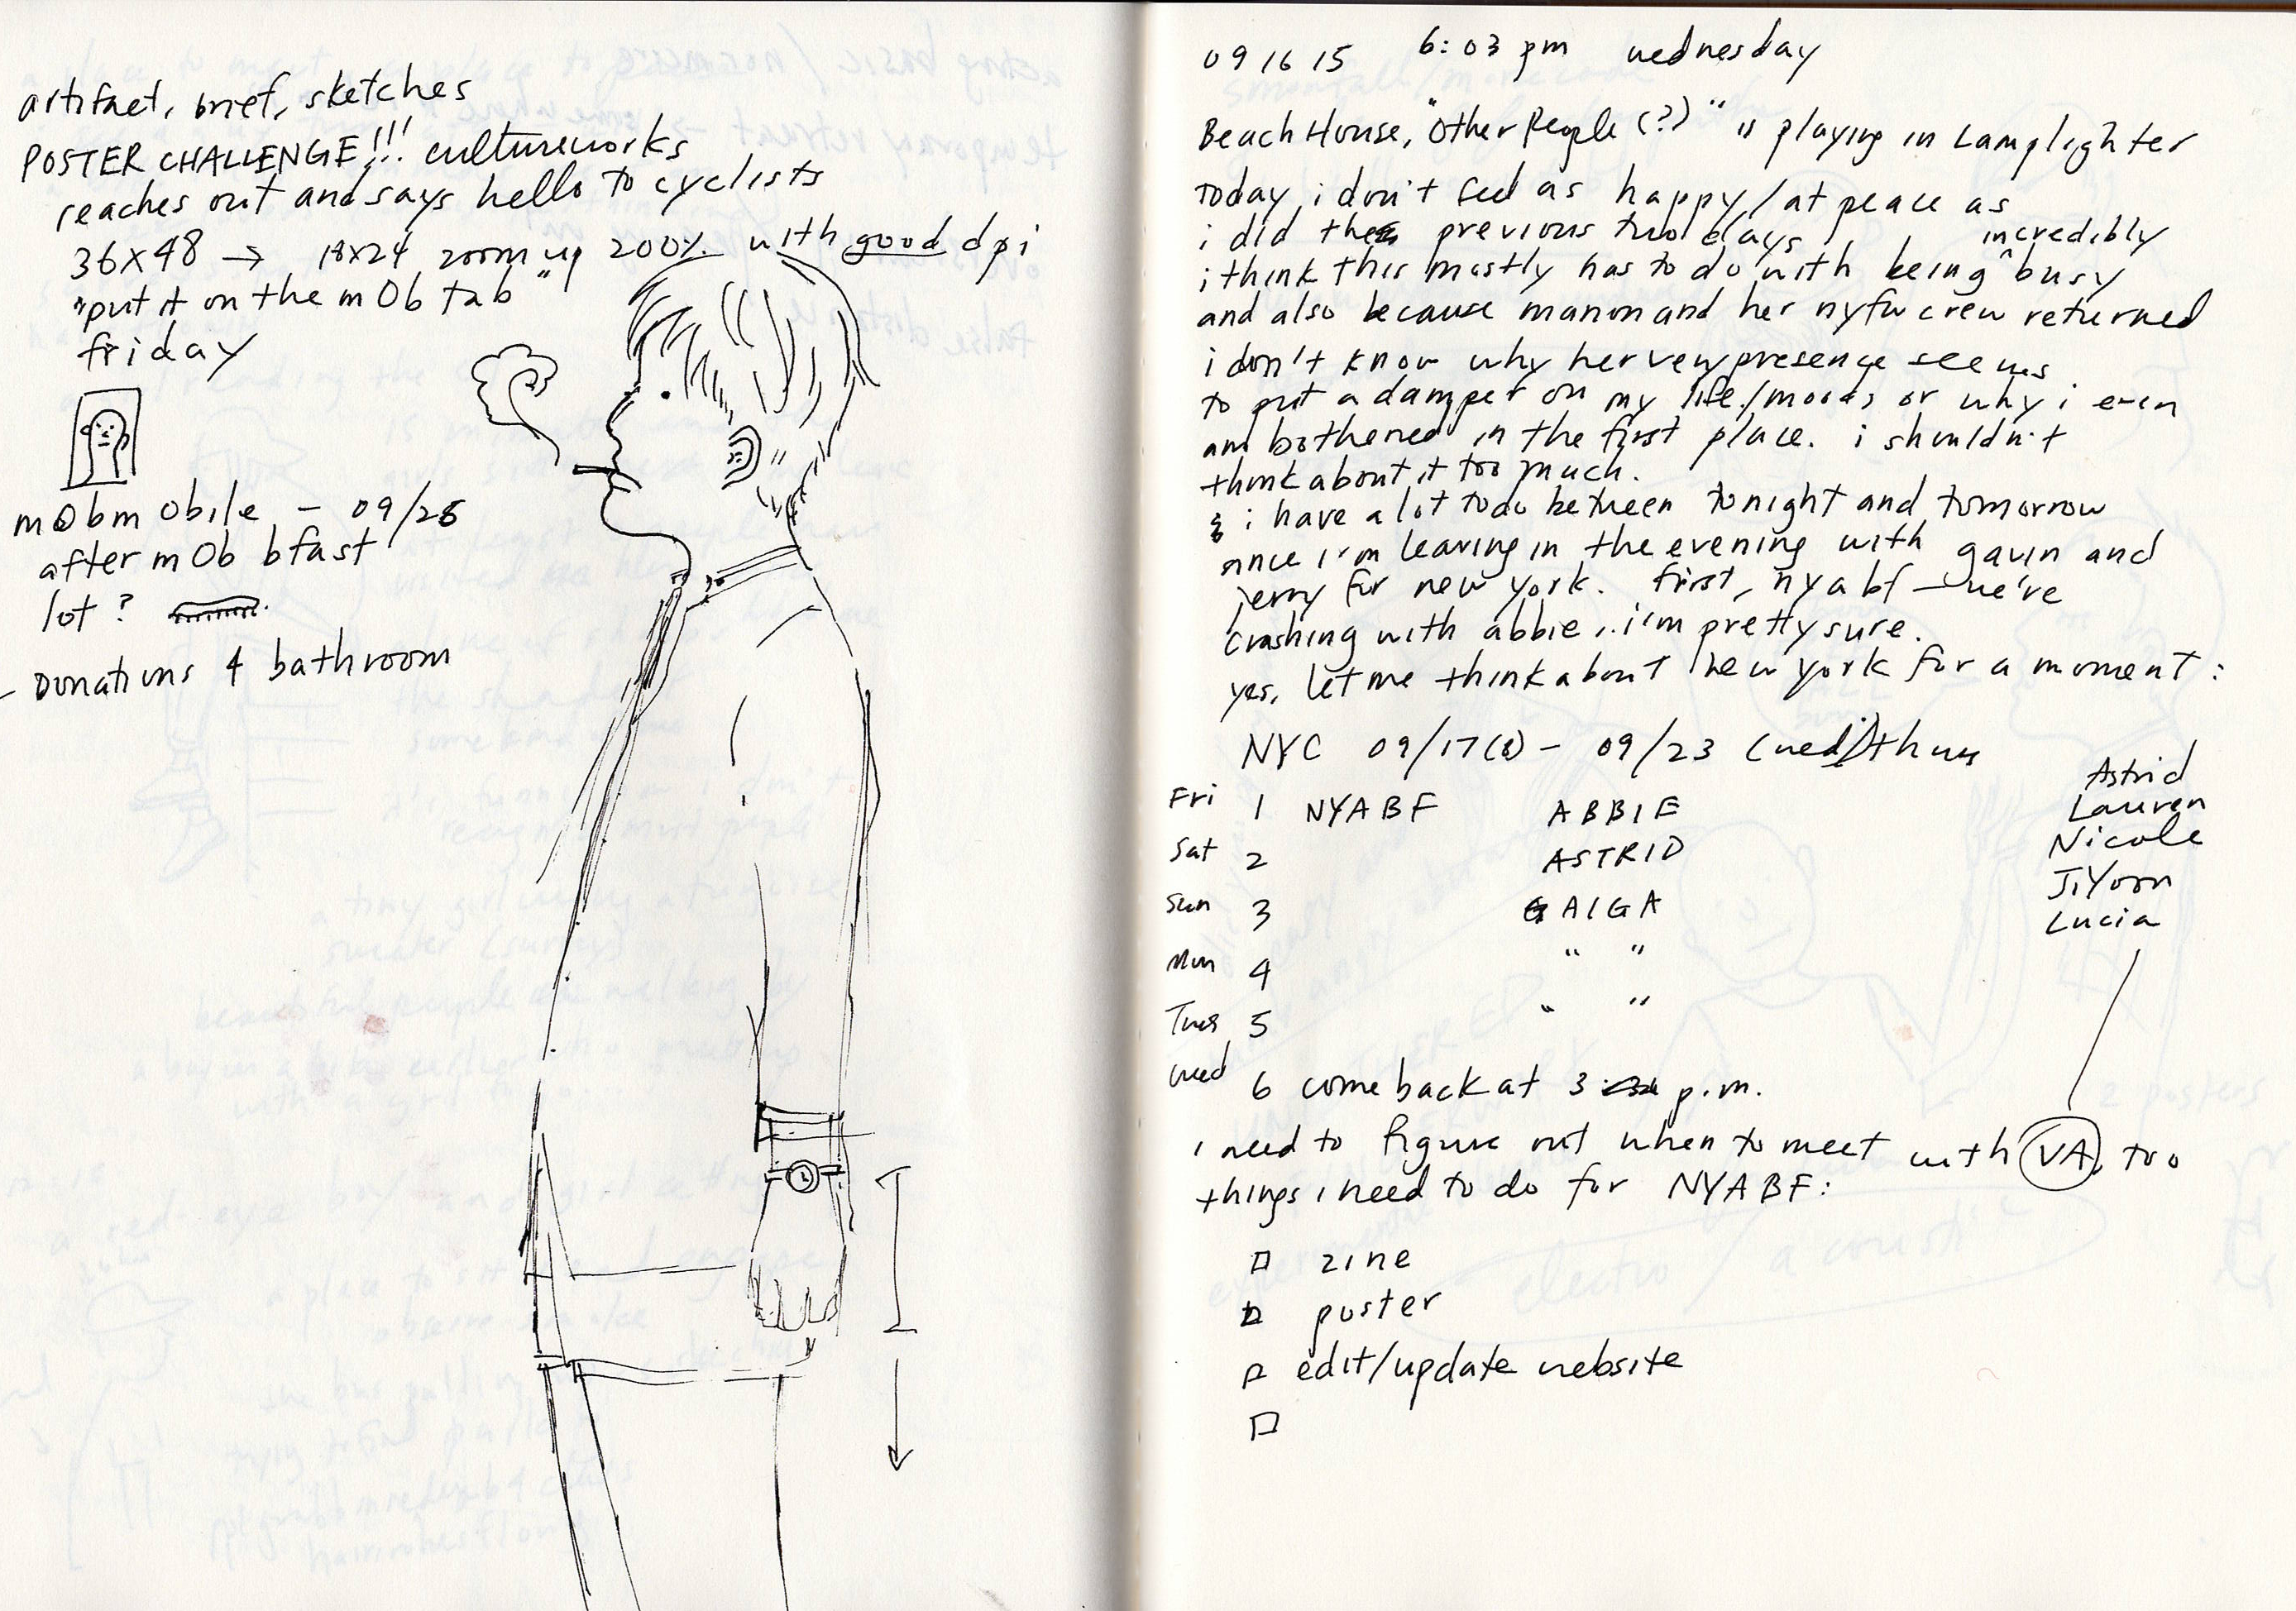 artifact, brief, sketches
POSTER CHALLENGE!!! cultureworks
reaches out and says hello to cyclists
36x48 → 18x24 zoom up 200% with good dpi
"put it on the mOb tab"
friday
mObmobile - 09/25
after mOb bfast
lot?
- Donations 4 bathroom
09 16 15 6:03 pm wednesday
Beach House, "Other People (?)" is playing in Lamplighter
Today i don't feel as happy/at peace as
i did the previous two days
incredibly
i think this mostly has to do with being ^ busy
and also because manon and her nyfw crew returned
i don't know why her very presence seems
to put a damper on my life/moods or why i even
am bothered in the first place. i shouldn't
think about it too much.
& i have a lot to do between tonight and tomorrow
since i'm leaving in the evening with gavin and
jerry for new york. first, nyabf — we're
crashing with abbie... i'm pretty sure.
yes, let me think about new york for a moment:
NYC 09/17(8) - 09/23 (wed)/thurs
Fri 1 NYABF ABBIE
Sat 2 ASTRID
Sun 3 AIGA
Mon 4 " "
Tues 5 " "
Wed 6 come back at 3 p.m.
Astrid
Lauren
Nicole
JiYoon
Lucia
i need to figure out when to meet with VA, too
things i need to do for NYABF:
□ zine
□ poster
□ edit/update website
□